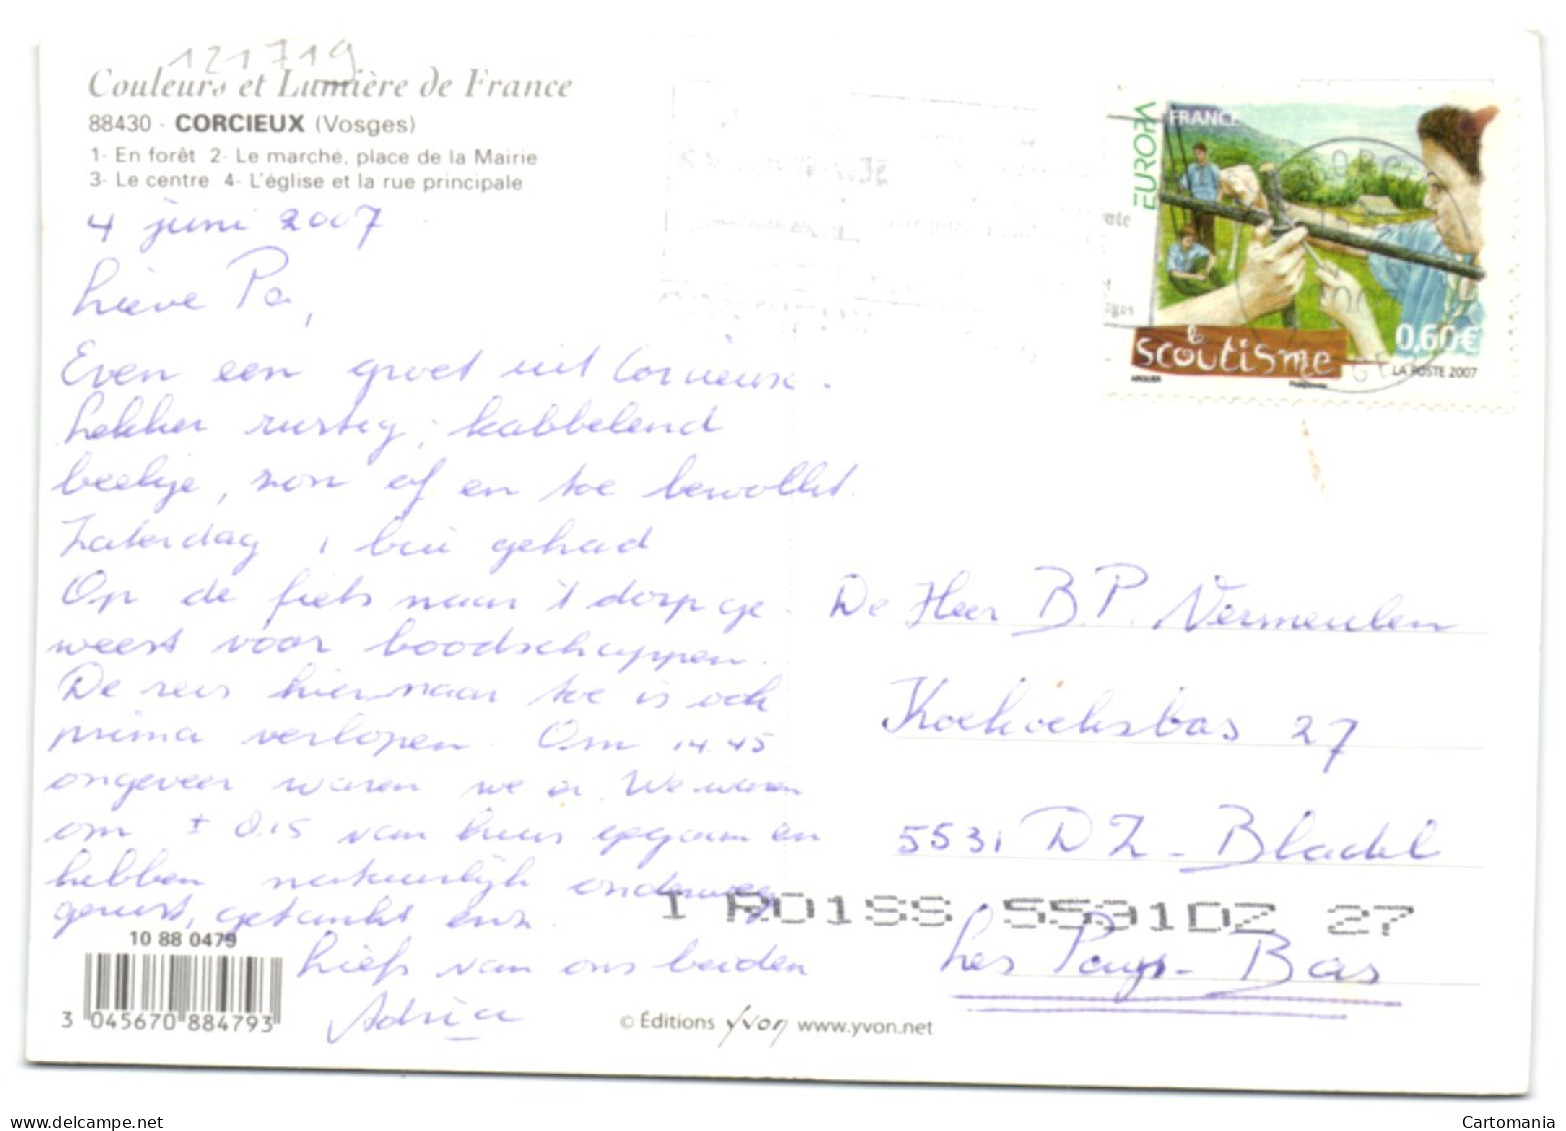 121719
Couleurs et Lumière de France
88430 - CORCIEUX (Vosges)
1- En forêt 2- Le marché, place de la Mairie
3- Le centre 4- L'église et la rue principale
4 juni 2007
Lieve Pa,
Even een groet uit Corcieux.
Lekker rustig, kabbelend
beekje, zon af en toe bewolkt.
Zaterdag 1 bui gehad
Op de fiets naar 't dorp ge-
weest voor boodschappen.
De reis hiernaar toe is ook
prima verlopen. Om 14.45
ongeveer waren we er. We waren
om ± 8.15 van huis gegaan en
hebben natuurlijk onderweg
gerust, getankt enz.
liefs van ons beiden
Adria
EUROPA
FRANCE
le scoutisme
0,60€
LA POSTE 2007
De Heer B.P. Vermeulen
Koekoeksbas 27
5531 DZ - Bladel
I R01SS 5531DZ 27
Les Pays-Bas
10 88 0479
3 045670 884793
© Éditions Yvon www.yvon.net
delcampe.net
Cartomania